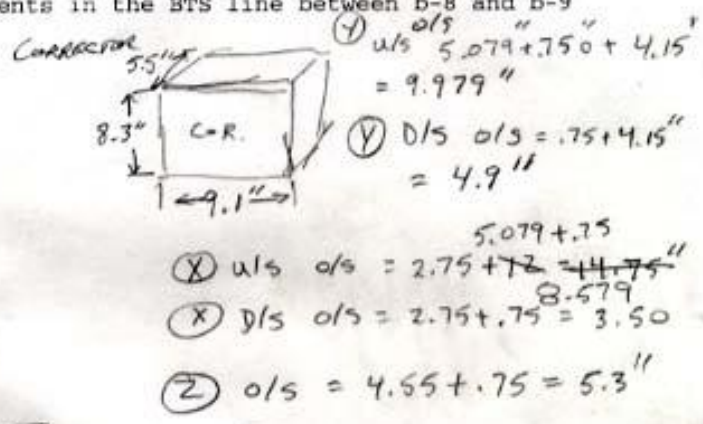 ents in the BTS line between b-8 and b-9
CORRECTOR
5.5"
8.3"
COR.
9.1"
Ⓨ u/s o/s 5.079"+.750"+4.15"
= 9.979"
Ⓨ D/S o/s = .75+4.15"
= 4.9"
5.079+.75
Ⓧ u/s o/s = 2.75+12 = 14.75"
8.579
Ⓧ D/S o/s = 2.75+.75 = 3.50
Ⓩ o/s = 4.55+.75 = 5.3"